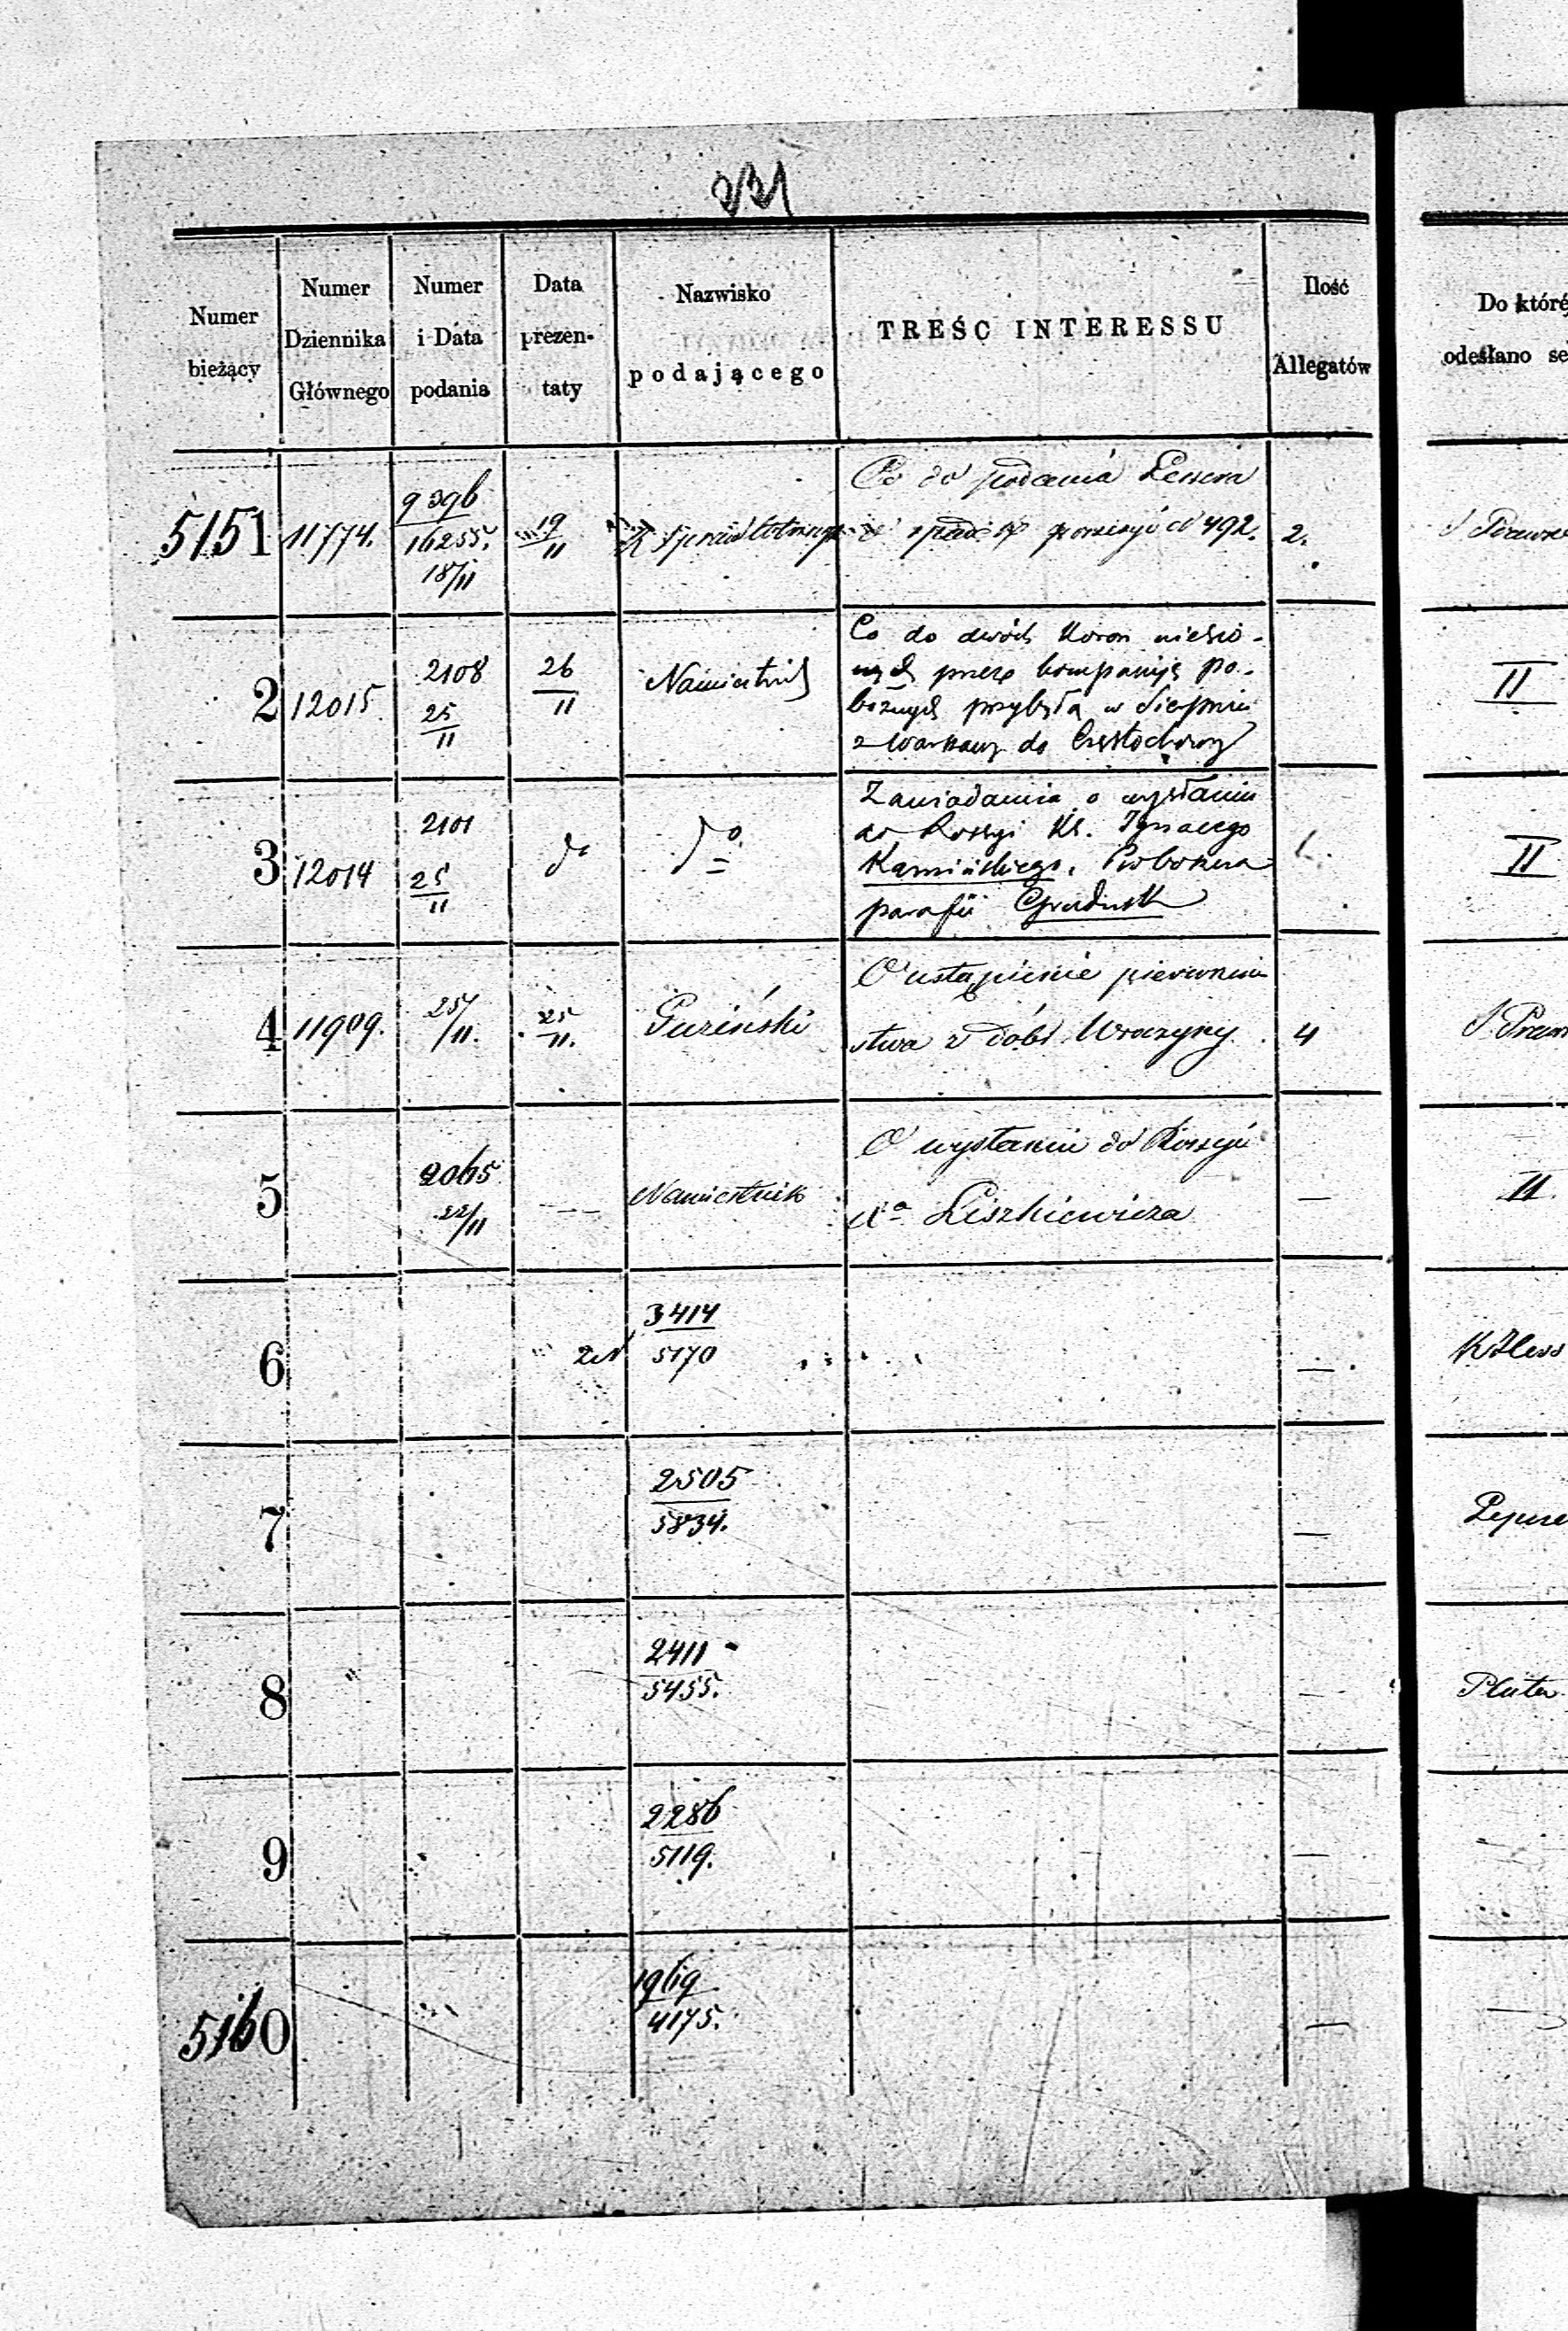 231
Numer bieżący
Numer Dziennika Głównego
Numer i Data podania
Data prezen-taty
Nazwisko podającego
TREŚC INTERESSU
Ilość Allegatów
Do które
odesłano se
5151
11774.
9396
16255.
18/11
19
11
Co do podania Lessera
492.
2.
2
12015.
2108
25
11
26
11
Namiestnik
Co do dwóch Koron niesio-
nych przez kompaniję po-
bożnych przybyłą w Sierpniu
z Warszawy do Częstochowy
II
3
12014
2101
25
11
do
do
Zawiadamia o wysłaniu
do Rossyi Ks. Ignacego
Kamińskiego, Proboszcza
parafii Grudusk
II
4
11909.
25/
/11.
25
11.
Guziński
O ustąpienie pierwszeń
stwa z dóbr Wroczyny.
4
5
2065
22/11
Namiestnik
O wysłaniu do Rossyi
Xa Liszkiewicza
—
II.
6
3414
5170
—
7
2505
5834.
—
8
2411
5455.
—
Plater
9
2286
5119.
—
5160
1969
4175.
—